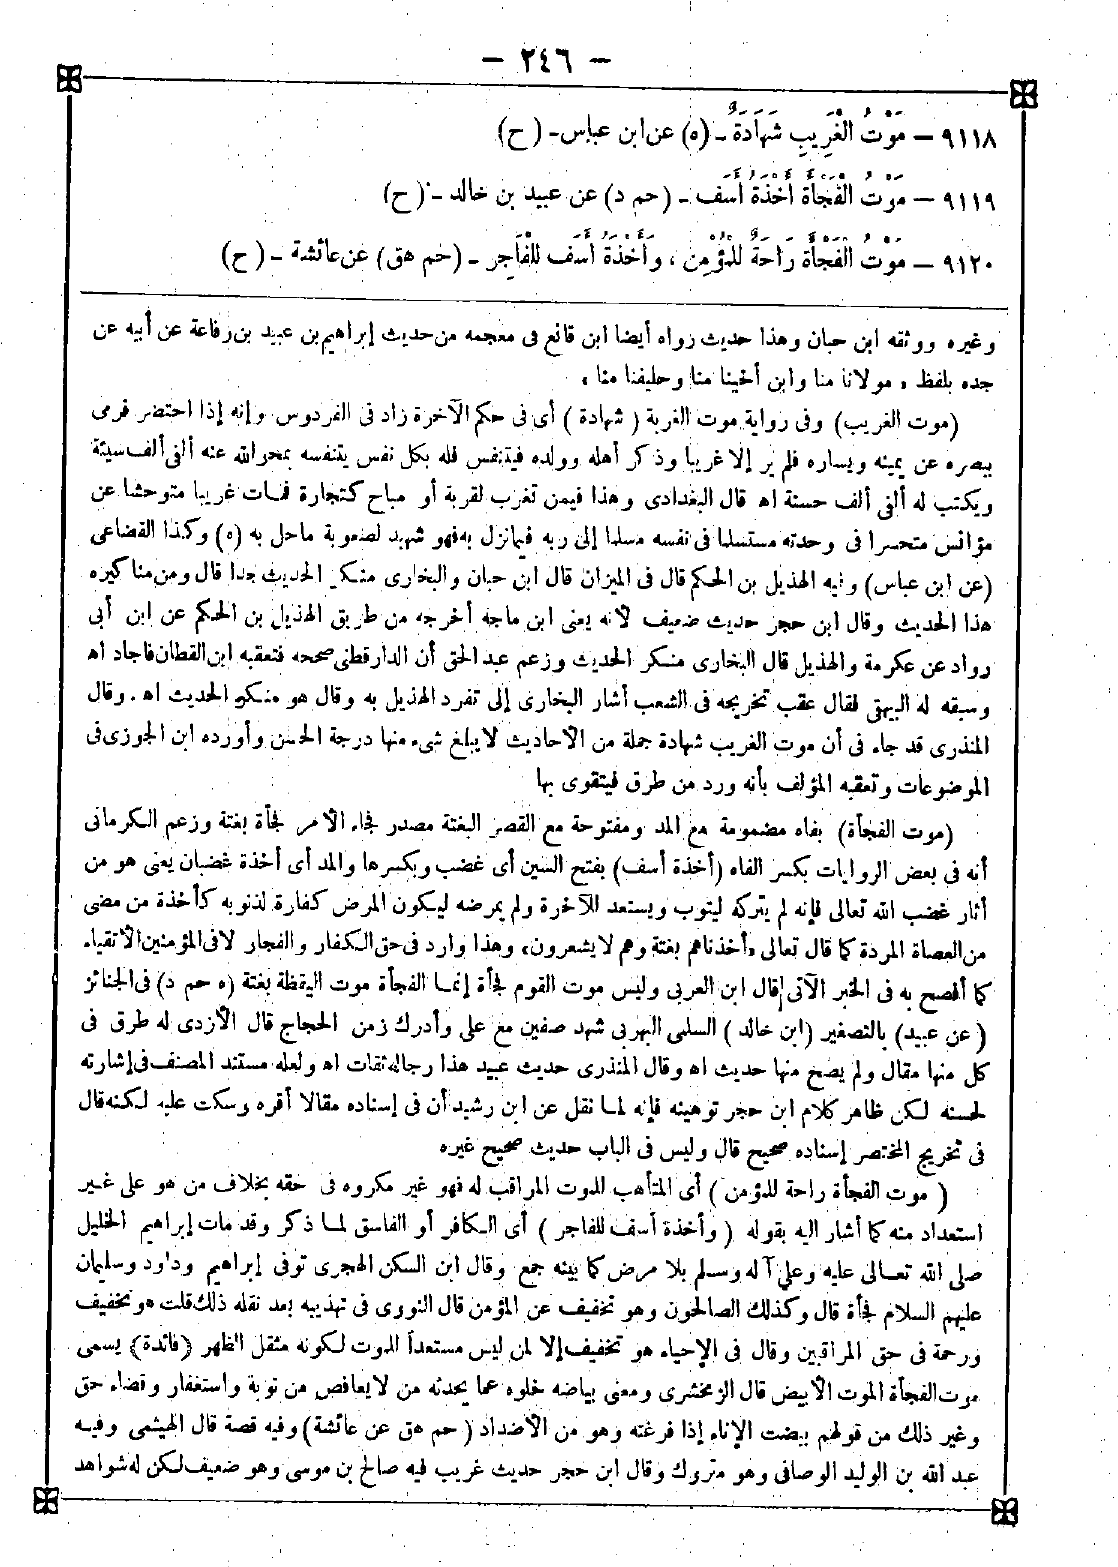 — ٢٤٦ —
٩١١٨ — مَوْتُ الْغَرِيبِ شَهَادَةٌ - (ه) عن ابن عباس - (ح)
٩١١٩ — مَوْتُ الْفَجْأَةِ أَخْذَةُ أَسَفٍ - (حم د) عن عبيد بن خالد - (ح)
٩١٢٠ — مَوْتُ الْفَجْأَةِ رَاحَةٌ لِلْمُؤْمِنِ ، وَأَخْذَةُ أَسَفٍ لِلْفَاجِرِ - (حم هق) عن عائشة - (ح)
وغيره ووثقه ابن حبان وهذا حديث رواه أيضا ابن قانع فى معجمه من حديث إبراهيم بن عبيد بن رفاعة عن أبيه عن
جده بلفظ « مولانا منا وابن أختنا منا وحليفنا منا »
(موت الغريب) وفى رواية موت الغربة (شهادة) أى فى حكم الآخرة زاد فى الفردوس وإنه إذا احتضر فرمى
ببصره عن يمينه ويساره فلم ير إلا غريبا وذكر أهله وولده فيتنفس فله بكل نفس يتنفسه يمحو الله عنه ألفى ألف سيئة
ويكتب له ألفى ألف حسنة اه قال البغدادى وهذا فيمن تغرب لقربة أو مباح كتجارة فمات غريبا متوحشا عن
مؤانس متحسرا فى وحدته مستسلما فى نفسه مسلما إلى ربه فيما نزل به فهو شهيد لصعوبة ماحل به (ه) وكذا القضاعى
(عن ابن عباس) وفيه الهذيل بن الحكم قال فى الميزان قال ابن حبان والبخارى منكر الحديث جدا قال ومن مناكيره
هذا الحديث وقال ابن حجر حديث ضعيف لأنه يعنى ابن ماجه أخرجه من طريق الهذيل بن الحكم عن ابن أبى
رواد عن عكرمة والهذيل قال البخارى منكر الحديث وزعم عبد الحق أن الدارقطنى صححه فتعقبه ابن القطان فأجاد اه
وسبقه له البيهقى فقال عقب تخريجه فى الشعب أشار البخارى إلى تفرد الهذيل به وقال هو منكر الحديث اه . وقال
المنذرى قد جاء فى أن موت الغريب شهادة جملة من الأحاديث لا يبلغ شىء منها درجة الحسن وأورده ابن الجوزى فى
الموضوعات وتعقبه المؤلف بأنه ورد من طرق فيتقوى بها
(موت الفجأة) بفاء مضمومة مع المد ومفتوحة مع القصر البغتة مصدر فجاء الأمر فجأة بغتة وزعم الكرمانى
أنه فى بعض الروايات بكسر الفاء (أخذة أسف) بفتح السين أى غضب وبكسرها والمد أى أخذة غضبان يعنى هو من
آثار غضب الله تعالى فإنه لم يتركه ليتوب ويستعد للآخرة ولم يمرضه ليكون المرض كفارة لذنوبه كأخذة من مضى
من العصاة المردة كما قال تعالى «أخذناهم بغتة وهم لا يشعرون» وهذا وارد فى حق الكفار والفجار لا فى المؤمنين الأتقياء
كما أفصح به فى الخبر الآتى قال ابن العربى وليس موت القوم فجأة إنما الفجأة موت اليقظة بغتة (ه حم د) فى الجنائز
(عن عبيد) بالتصغير (ابن خالد) السلمى البهزى شهد صفين مع على وأدرك زمن الحجاج قال الأزدى له طرق فى
كل منها مقال ولم يصح منها حديث اه وقال المنذرى حديث عبيد هذا رجاله ثقات اه ولعله مستند المصنف فى إشارته
لحسنه لكن ظاهر كلام ابن حجر توهينه فإنه لما نقل عن ابن رشيد أن فى إسناده مقالا أقره وسكت عليه لكنه قال
فى تخريج المختصر إسناده صحيح قال وليس فى الباب حديث صحيح غيره
(موت الفجأة راحة للمؤمن) أى المتأهب للموت المراقب له فهو غير مكروه فى حقه بخلاف من هو على غير
استعداد منه كما أشار اليه بقوله (وأخذة أسف للفاجر) أى الكافر أو الفاسق لما ذكر وقد مات إبراهيم الخليل
صلى الله تعالى عليه وعلى آله وسلم بلا مرض كما بينه جمع وقال ابن السكن الهجرى توفى إبراهيم وداود وسليمان
عليهم السلام فجأة قال وكذلك الصالحون وهو تخفيف عن المؤمن قال النووى فى تهذيبه بعد نقله ذلك قلت هو تخفيف
ورحمة فى حق المراقبين وقال فى الإحياء هو تخفيف إلا لمن ليس مستعداً للموت لكونه مثقل الظهر (فائدة) يسمى
موت الفجأة الموت الأبيض قال الزمخشرى ومعنى بياضه خلوه عما يحدثه من لا يعافص من توبة واستغفار وقضاء حق
وغير ذلك من قولهم بيضت الإناء إذا فرغته وهو من الأضداد (حم هق عن عائشة) وفيه قصة قال الهيثمى وفيه
عبد الله بن الوليد الوصافى وهو متروك وقال ابن حجر حديث غريب فيه صالح بن موسى وهو ضعيف لكن له شواهد